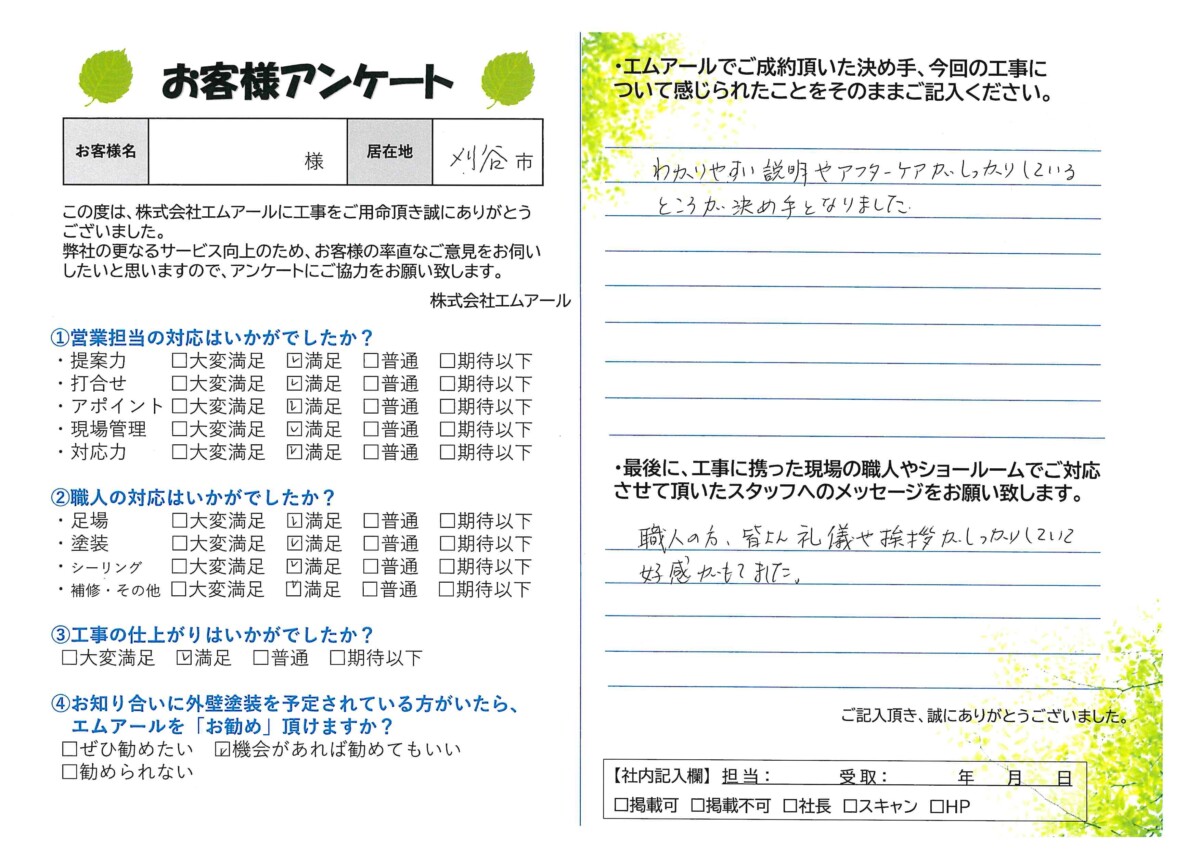 お客様アンケート
お客様名 様 居在地 刈谷 市
この度は、株式会社エムアールに工事をご用命頂き誠にありがとう
ございました。
弊社の更なるサービス向上のため、お客様の率直なご意見をお伺い
したいと思いますので、アンケートにご協力をお願い致します。
株式会社エムアール
①営業担当の対応はいかがでしたか？
・提案力 □大変満足 ☑満足 □普通 □期待以下
・打合せ □大変満足 ☑満足 □普通 □期待以下
・アポイント □大変満足 ☑満足 □普通 □期待以下
・現場管理 □大変満足 ☑満足 □普通 □期待以下
・対応力 □大変満足 ☑満足 □普通 □期待以下
②職人の対応はいかがでしたか？
・足場 □大変満足 ☑満足 □普通 □期待以下
・塗装 □大変満足 ☑満足 □普通 □期待以下
・シーリング □大変満足 ☑満足 □普通 □期待以下
・補修・その他 □大変満足 ☑満足 □普通 □期待以下
③工事の仕上がりはいかがでしたか？
□大変満足 ☑満足 □普通 □期待以下
④お知り合いに外壁塗装を予定されている方がいたら、
エムアールを「お勧め」頂けますか？
□ぜひ勧めたい ☑機会があれば勧めてもいい
□勧められない
・エムアールでご成約頂いた決め手、今回の工事に
ついて感じられたことをそのままご記入ください。
わかりやすい説明やアフターケアがしっかりしている
ところが決め手となりました。
・最後に、工事に携った現場の職人やショールームでご対応
させて頂いたスタッフへのメッセージをお願い致します。
職人の方、皆さん礼儀や挨拶がしっかりしていて
好感がもてました。
ご記入頂き、誠にありがとうございました。
【社内記入欄】 担当： 受取： 年 月 日
□掲載可 □掲載不可 □社長 □スキャン □HP